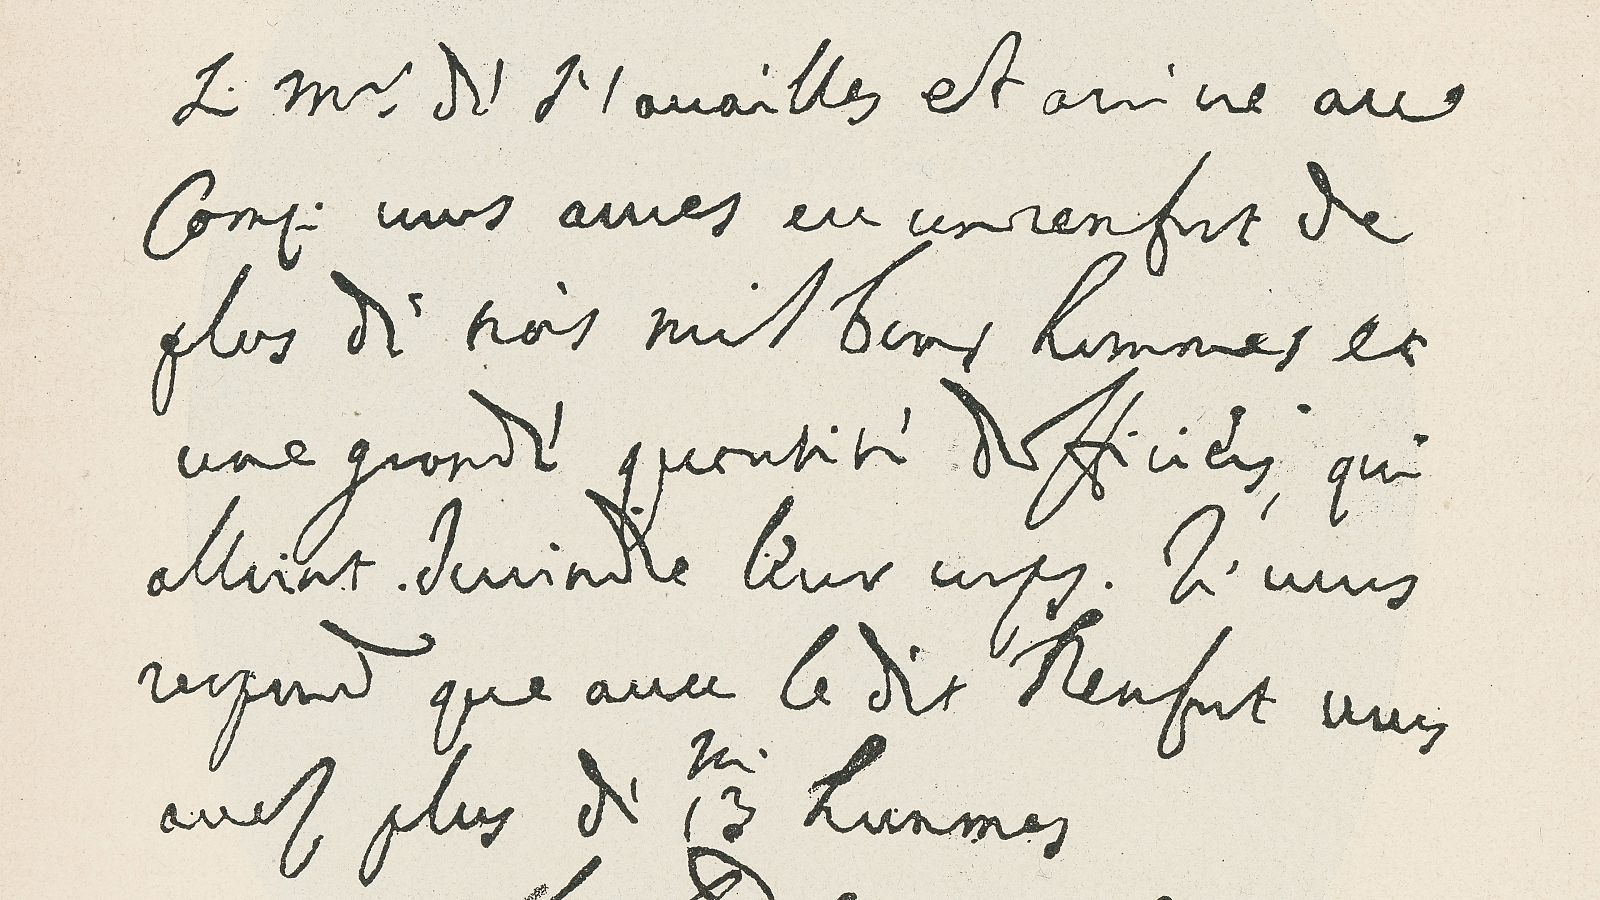 Le Mr de Noailles est arrive au
Camp. vous aures eu un renfort de
plus de trois mil bons hommes et
une grande quantité dofficiés, qui
alloint Juindre leur corps. Je vous
respond que avec le dit Renfort vous
avez plus de 13 m hommes